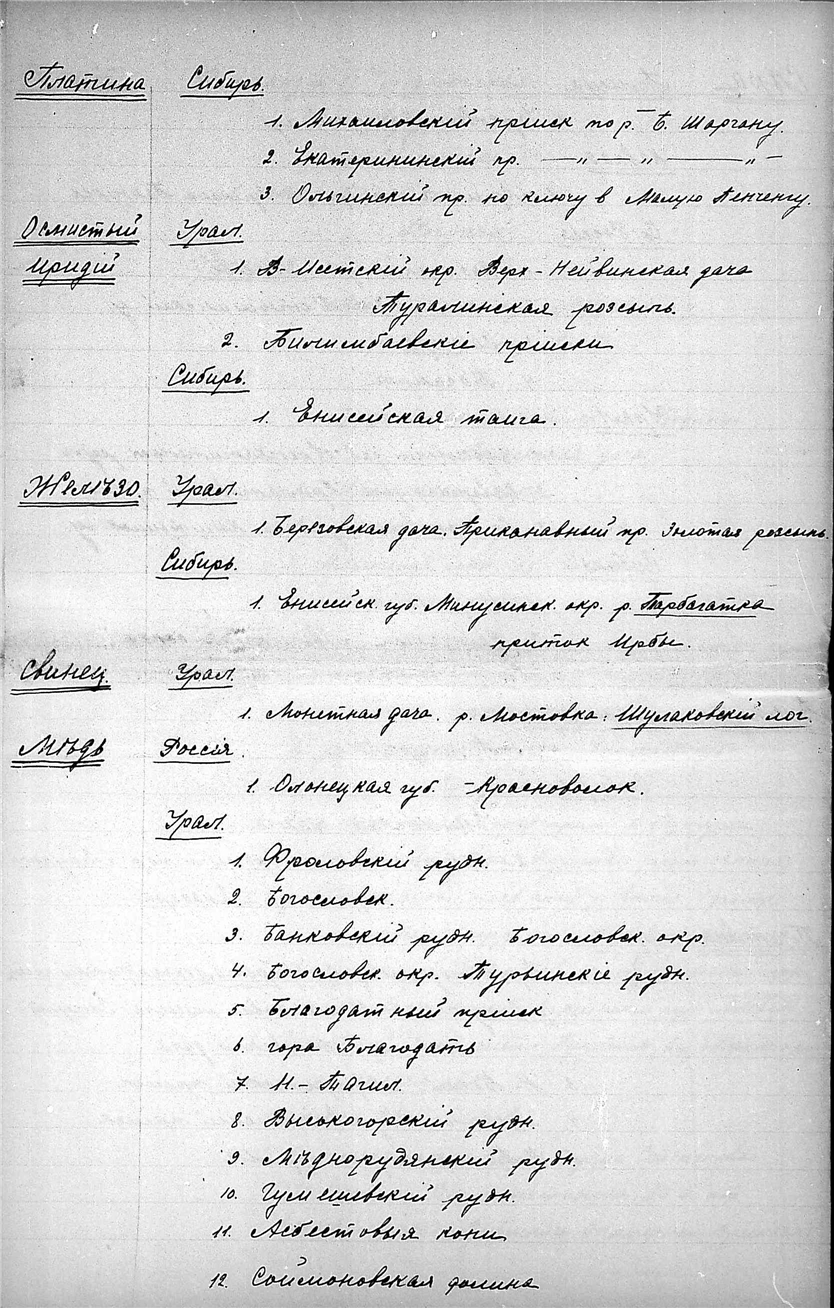 Платина Сибирь.
1. Михаиловскій пріиск по р. Б. Шаргану.
2. Екатерининскій пр. — „ — „ — „ —
3. Ольгинскій пр. по ключу в Малую Пенченгу.
Осмистый Урал.
Иридій 1. В-Исетскій окр. Верх-Нейвинская дача
Тураминская розсыпь.
2. Билимбаевскіе пріиски
Сибирь.
1. Енисейская таига.
Желѣзо. Урал.
1. Березовская дача. Приканавный пр. Золотая розсыпь.
Сибирь.
1. Енисейск. губ. Минусинск. окр. р. Тарбагатка
приток Ирбы.
Свинец. Урал.
1. Монетная дача. р. Мостовка. Шулаковскій лог.
Мѣдь Россія.
1. Олонецкая губ. – Красноволок.
Урал.
1. Фроловскій рудн.
2. Богословск.
3. Банковскій рудн. Богословск. окр.
4. Богословск. окр. Турьинскіе рудн.
5. Благодатный пріиск
6. гора Благодать
7. Н.-Тагил.
8. Высокогорскій рудн.
9. Мѣднорудянскій рудн.
10. Гумешевскій рудн.
11. Асбестовыя копи
12. Соймоновская долина